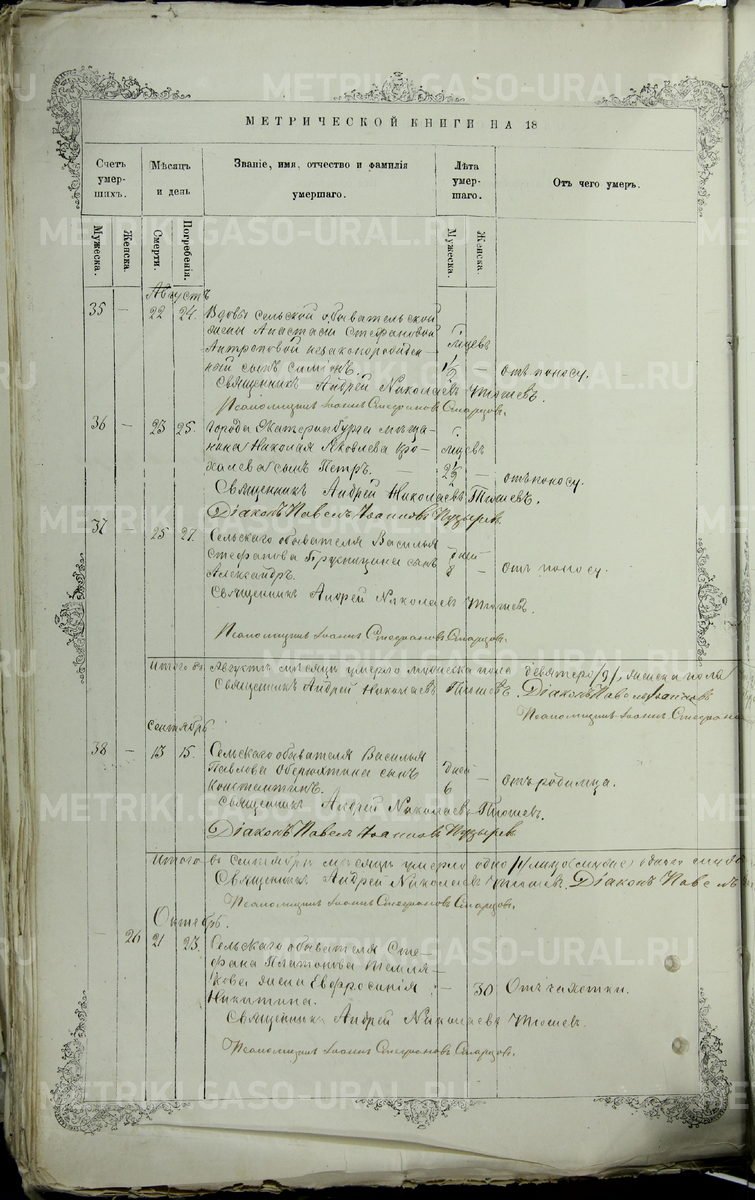 МЕТРИЧЕСКОЙ КНИГИ НА 18
Счетъ умер- шихъ.
Мѣсяцъ и день
Званіе, имя, отчество и фамилія умершаго.
Лѣта умер- шаго.
Отъ чего умеръ.
Мужеска.
Женска.
Смерти.
Погребенія.
Мужеска.
Женска.
Августъ
35 — 22 24. Вдовы сельской обывательской
жены Анастасіи Стефановой
мцевъ
ный сынъ Симеонъ. 1½ отъ поносу.
Священникъ Андрей Николаевъ Тюшевъ.
Псаломщикъ Іоаннъ Стефановъ Старцовъ.
36 — 23 25. Города Екатеринбурга мѣща-
нина Николая Яковлева Кро- мцевъ
халева сынъ Петръ. — 2½ — отъ поносу.
Священникъ Андрей Николаевъ Тюшевъ.
Діаконъ Павелъ Іоанновъ Пузыревъ.
37 — 25 27. Сельскаго обывателя Василья
Стефанова сынъ дней
Александръ. 8 — отъ поносу.
Священникъ Андрей Николаевъ Тюшевъ.
Псаломщикъ Іоаннъ Стефановъ Старцовъ.
Итого въ Августѣ мѣсяцѣ умерло мужеска пола девятеро /9/, женска пола
Священникъ Андрей Николаевъ Тюшевъ. Діаконъ Павелъ Іоанновъ
Псаломщикъ Іоаннъ Стефано
Сентябрь
38 — 13 15. Сельскаго обывателя Василья
Павлова Оберюхтина сынъ дней —
Константинъ. 6 отъ родимца.
Священникъ Андрей Николаевъ Тюшевъ.
Діаконъ Павелъ Іоанновъ Пузыревъ.
Итого въ Сентябрѣ мѣсяцѣ умерло одно /1/ лицо
Священникъ Андрей Николаевъ Тюшевъ. Діаконъ Павелъ
Псаломщикъ Іоаннъ Стефановъ Старцовъ.
Октябрь.
26 21 23. Сельскаго обывателя Сте-
фана Платонова Темля-
кова жена Евфросинія — 30 Отъ чахотки.
Никитина.
Священникъ Андрей Николаевъ Тюшевъ
Псаломщикъ Іоаннъ Стефановъ Старцовъ.
METRIKI.GASO-URAL.RU